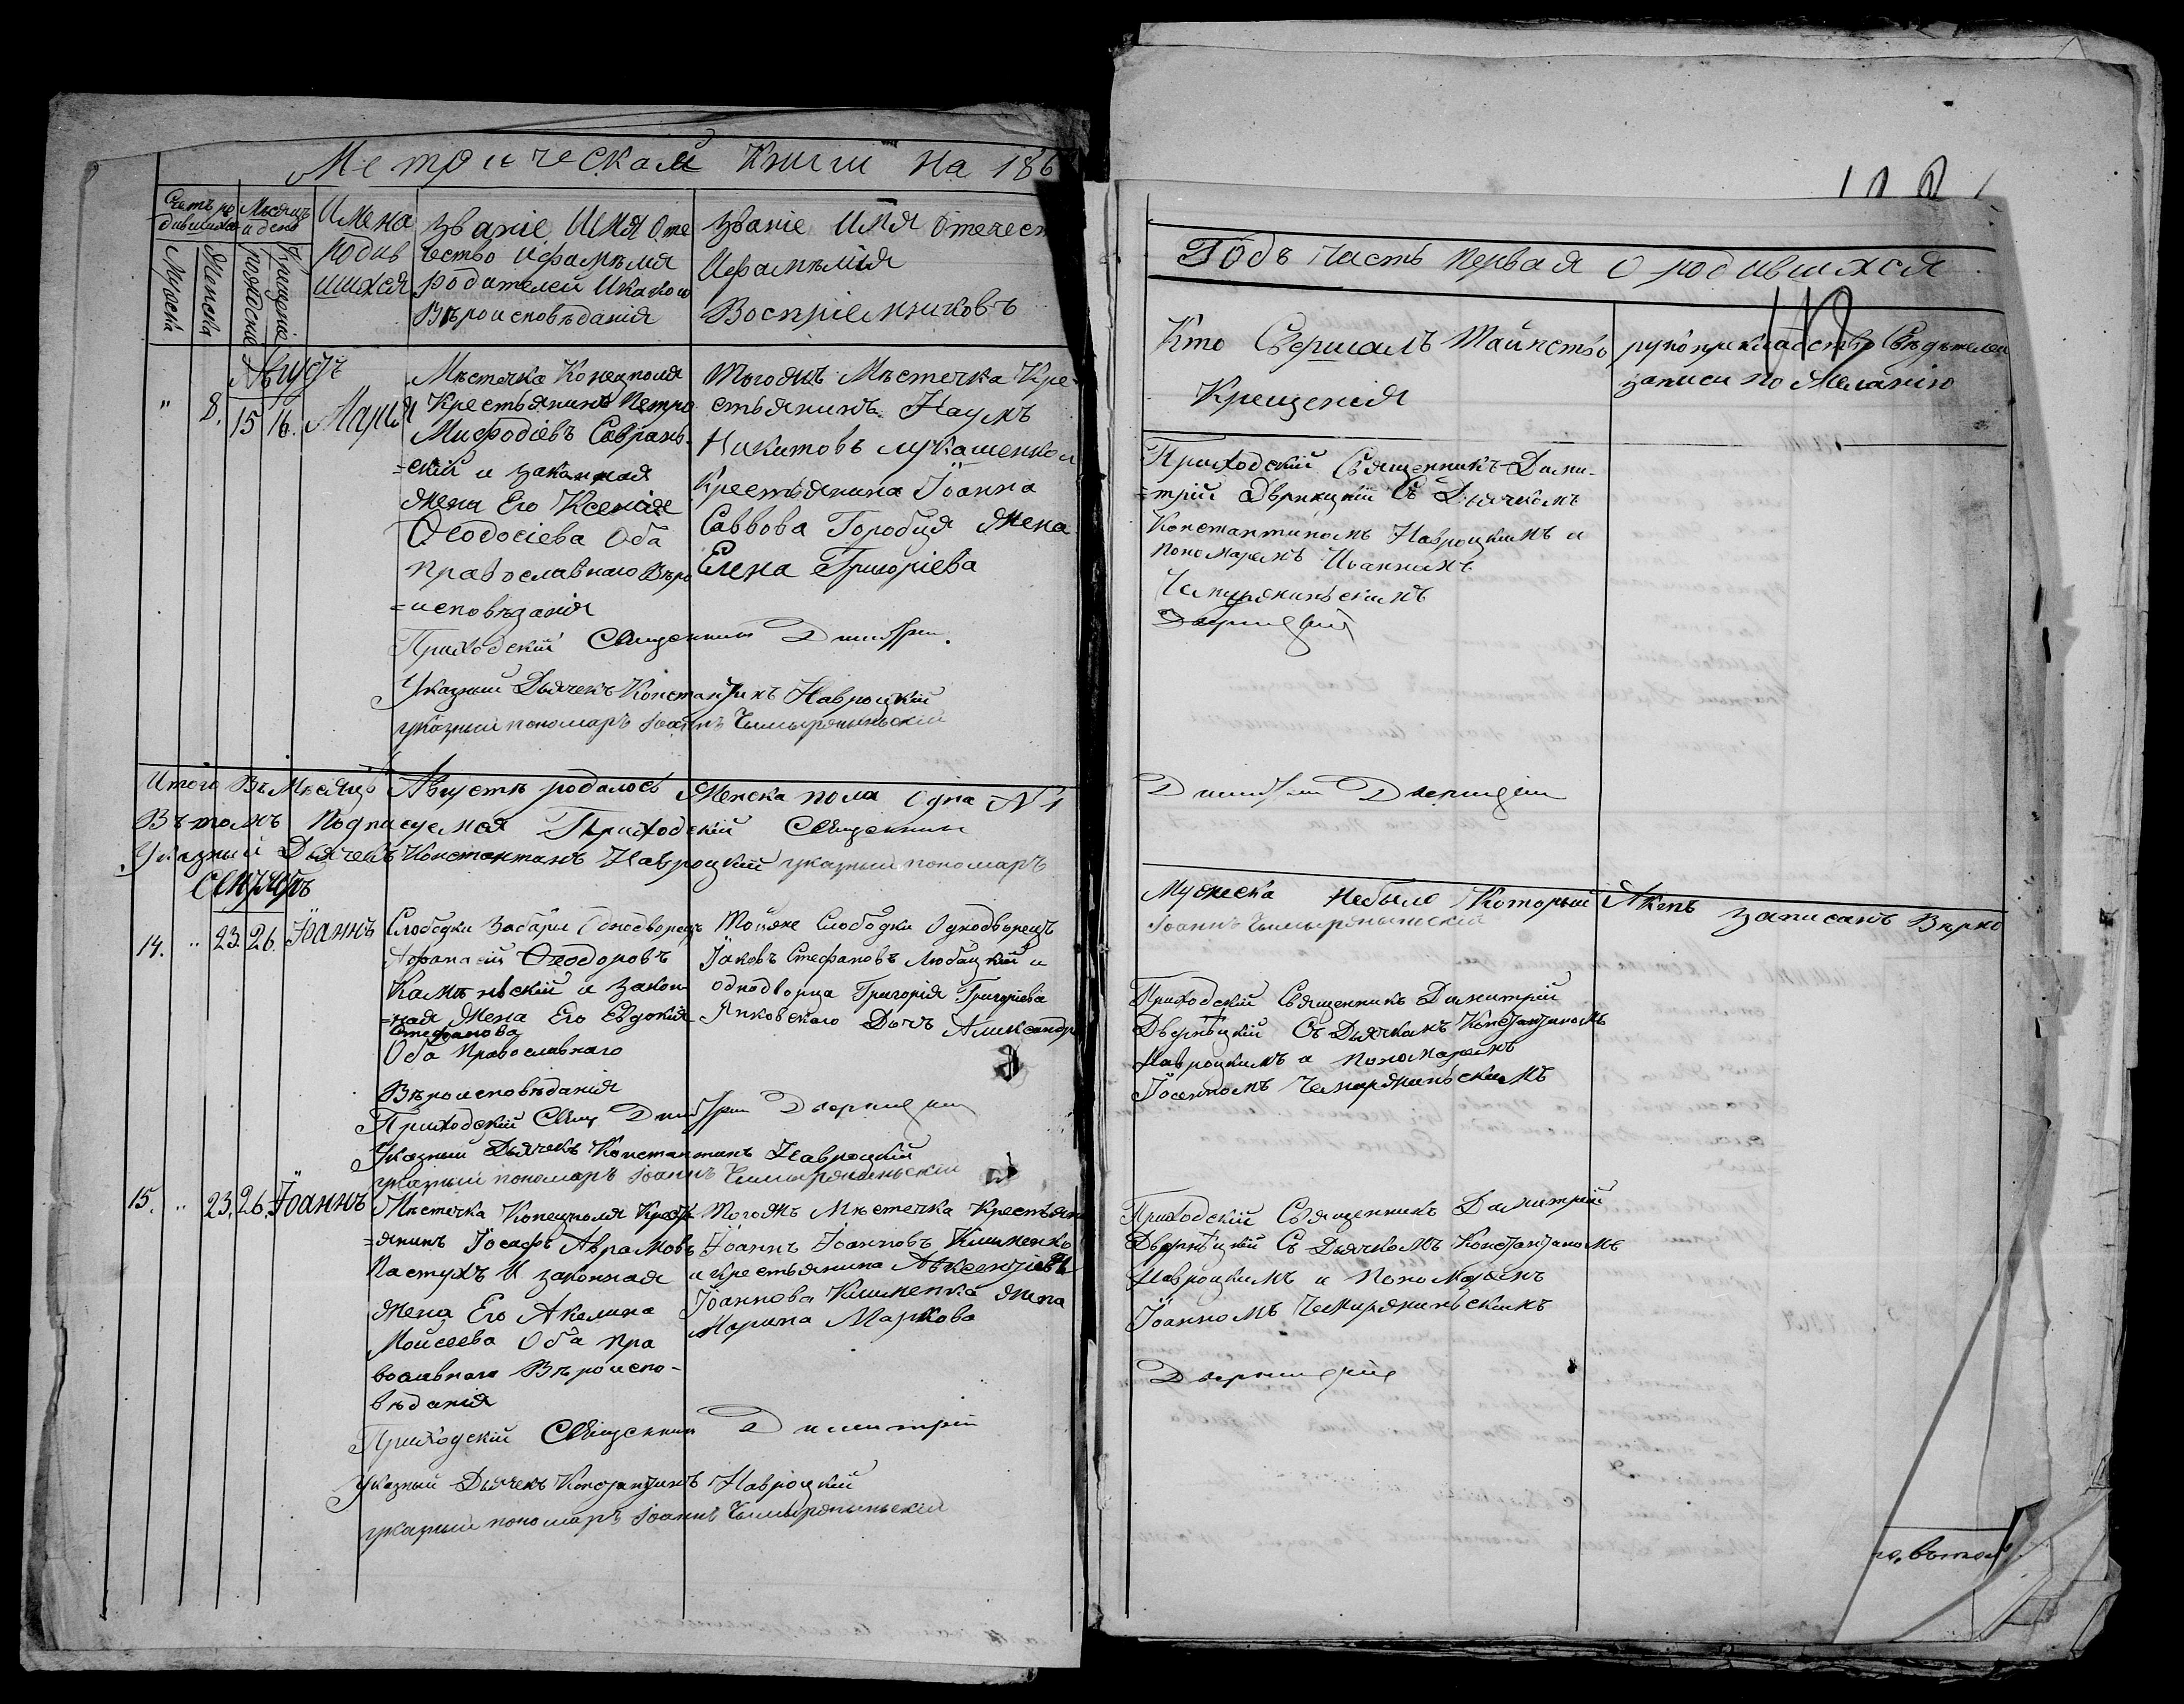 Метрической Книги на 186
Счетъ ро
дившихся
Мѣсяцъ
и день
Имена
родив
шихся
Званіе Имя Оте
чество и фамилія
родителей и какого
Вѣроисповѣданія
Званіе Имя Отечест
И фамилія
Воспріемниковъ
Мужска
Женска
рожденіе
Крещеніе
Августъ
" 8. 15 16. Марія
Мѣстечка Конецполя
Крестьянинъ Петро
Мифодіевъ Саврань-
=скій и законная
жена Его Ксенія
Ѳеодосіева Оба
православнаго Вѣро
=исповѣданія
Тогожъ Мѣстечка Кре-
стьянинъ Наумъ
Никитовъ Лукашенко и
Крестьянина Іоанна
Саввова Горобця жена
Елена Григоріева
Приходскій Священникъ Димитрій
Указный Дьячекъ Константинъ Навроцкій
указный пономарь Іоаннъ
Итого Въ Мѣсяцѣ Августѣ родалось Женска пола Одна №1
Въ томъ Подписуемся Приходскій Священникъ
Указный Дьячекъ Константинъ Навроцкій указный пономарь
Сентябрь
14. " 23. 26. Іоаннъ
Слободки Забари Однодворецъ
Афанасій Ѳеодоровъ
Каминскій и закон
=ная жена Его Евдокія
Стефанова
Оба православнаго
Вѣроисповѣданія
Тойже Слободки Однодворецъ
Іаковъ Стефановъ Любацкій и
однодворца Григорія Григоріева
Янковскаго Дочь Александр
Приходскій Свящ Димитрій Дверницкій
Указный Дьячекъ Константинъ Навроцкій
указный пономарь Іоаннъ
15. " 23. 26. Іоаннъ
Мѣстечка Конецполя Кресть
=янинъ Іосафъ Авраамовъ
Пастухъ И законная
жена Его Акелина
Моисеева Оба пра
вославнаго Вѣроиспо-
вѣданія
Тогожъ Мѣстечка Крестьян
Іоаннъ Іоанновъ Клименко
и крестьянина Авксентіева
Іоаннова Клименка жена
Марина Маркова
Приходскій Священникъ Димитрій
Указный Дьячекъ Константинъ Навроцкій
указный пономарь Іоаннъ
Годъ Часть Первая О родившихся
Кто Совершалъ Таинство
Крещенія
рукоприкладство Свѣдѣтелей
записи по Желанію
Приходскій Священникъ Дими-
=трій Дверницкій Съ Дьячкомъ
Константиномъ Навроцкимъ и
пономаремъ Иоанномъ
Дверницкій
Димитрій Дверницкій
Мужеска Небыло Который Актъ записанъ Вѣрно
Іоаннъ
Приходскій Священникъ Димитрій
Дверницкій Съ Дьячкомъ Константиномъ
Навроцкимъ и Пономаремъ
Приходскій Священникъ Димитрій
Дверницкій Съ Дьячкомъ Константиномъ
Навроцкимъ и Пономаремъ
Іоанномъ
Дверницкій